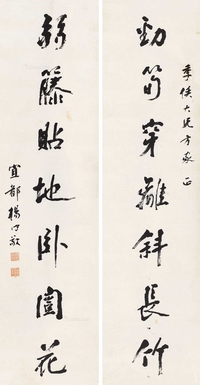 季侯大兄方家正
勁筍穿離斜長竹
弱籐貼地卧開花
宜都楊守敬